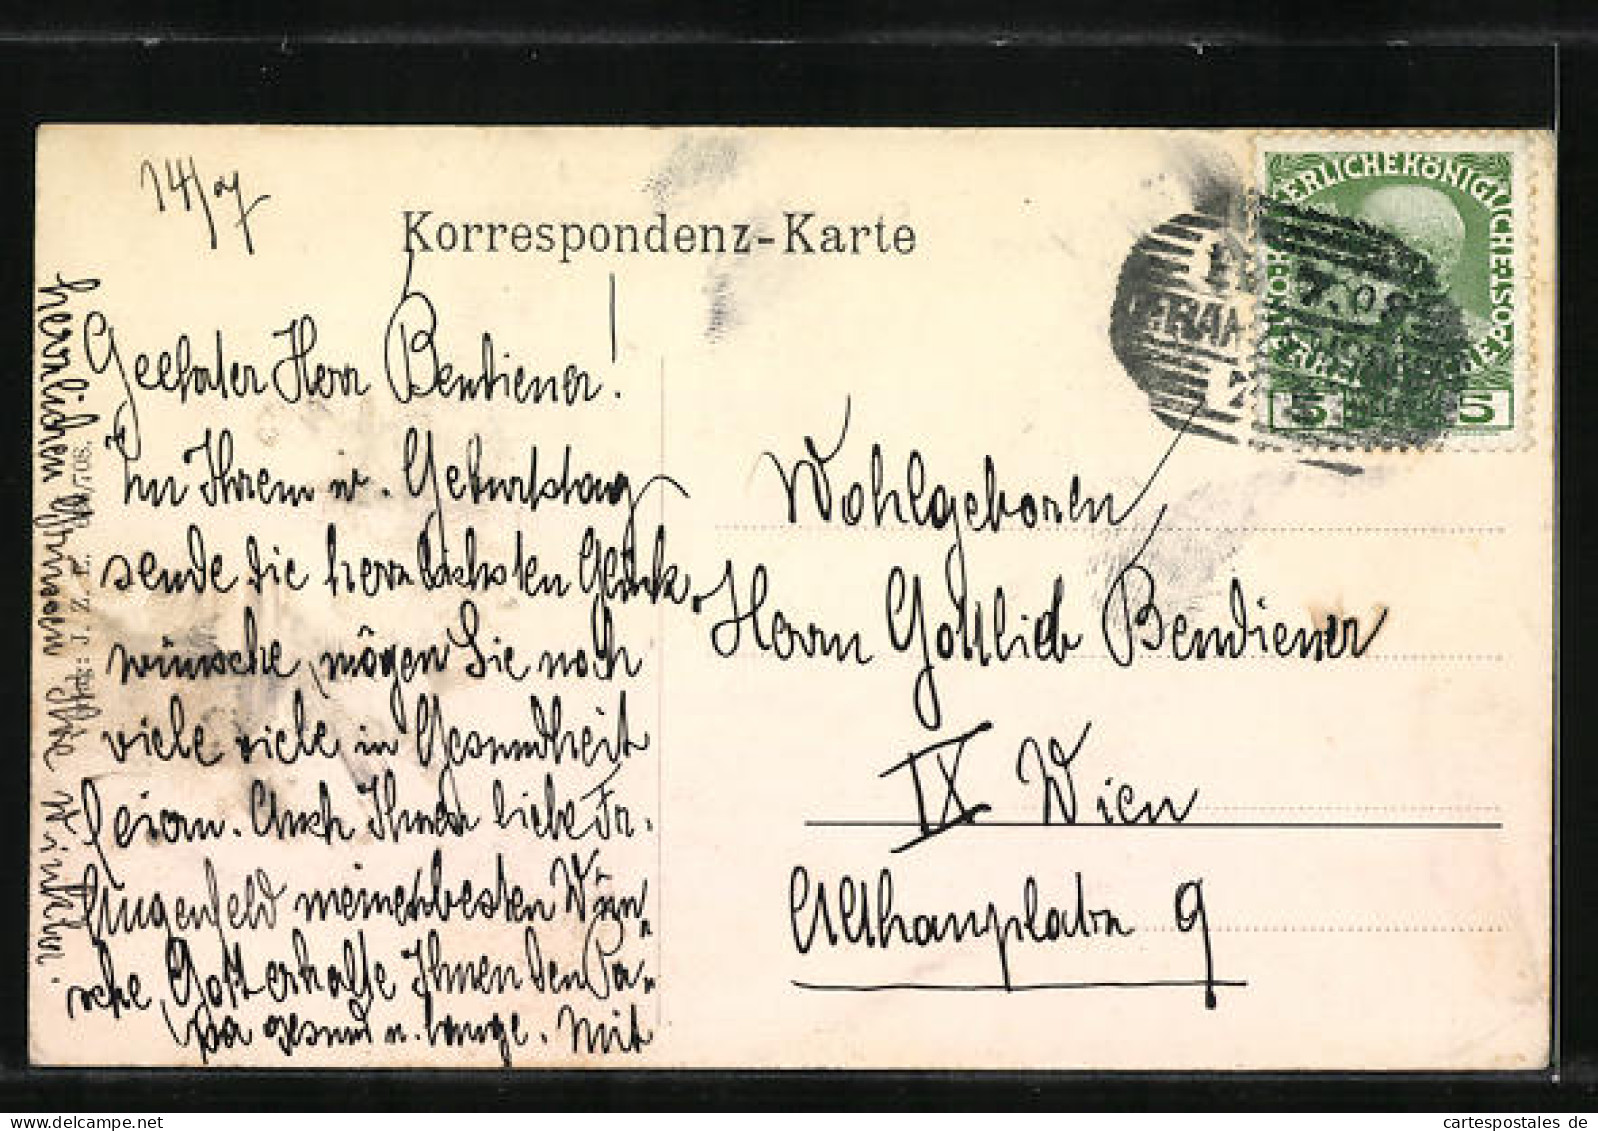 14/7
Korrespondenz-Karte
Geehrter Herr Bendiener!
Zu Ihrem w. Geburtstag
sende die herzlichsten Glück-
wünsche, mögen Sie noch
viele viele in Gesundheit
feiern. Auch Ihnen liebe Fr.
Augenfeld meine besten Wün-
sche, Gott erhalte Ihnen den Pa-
pa gesund u. lange. Mit
herzlichen Grüssen Ihre
J. Z. E. /08.
KAISERLICHE KÖNIGLICHE ÖSTERREICHISCHE POST
5 5
7.08
Wohlgeboren
Herrn Gottlieb Bendiener
IX Wien
Althanplatz 9
cartespostales de